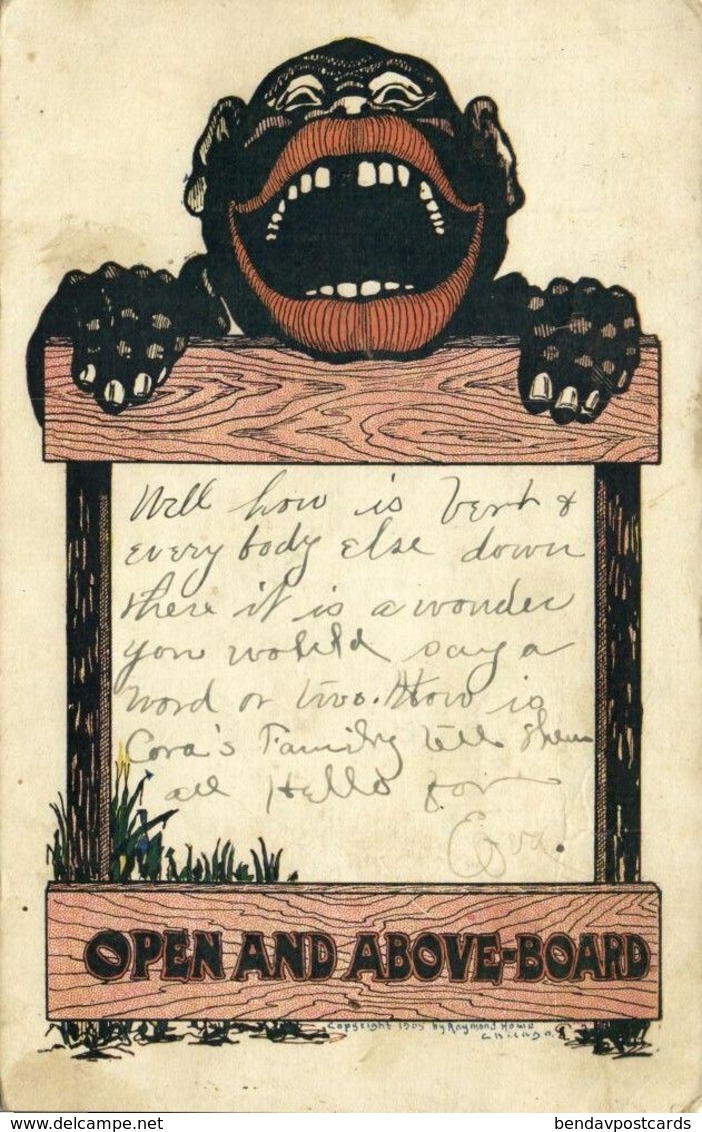 Well how is Bert &
every body else down
there it is a wonder
you wouldd say a
word or two. How is
Cora's Family tell them
all Hello for
Eva.
OPEN AND ABOVE-BOARD
Copyright 1905 by Raymond Howe
Chicago.
www.delcampe.net
bendavpostcards